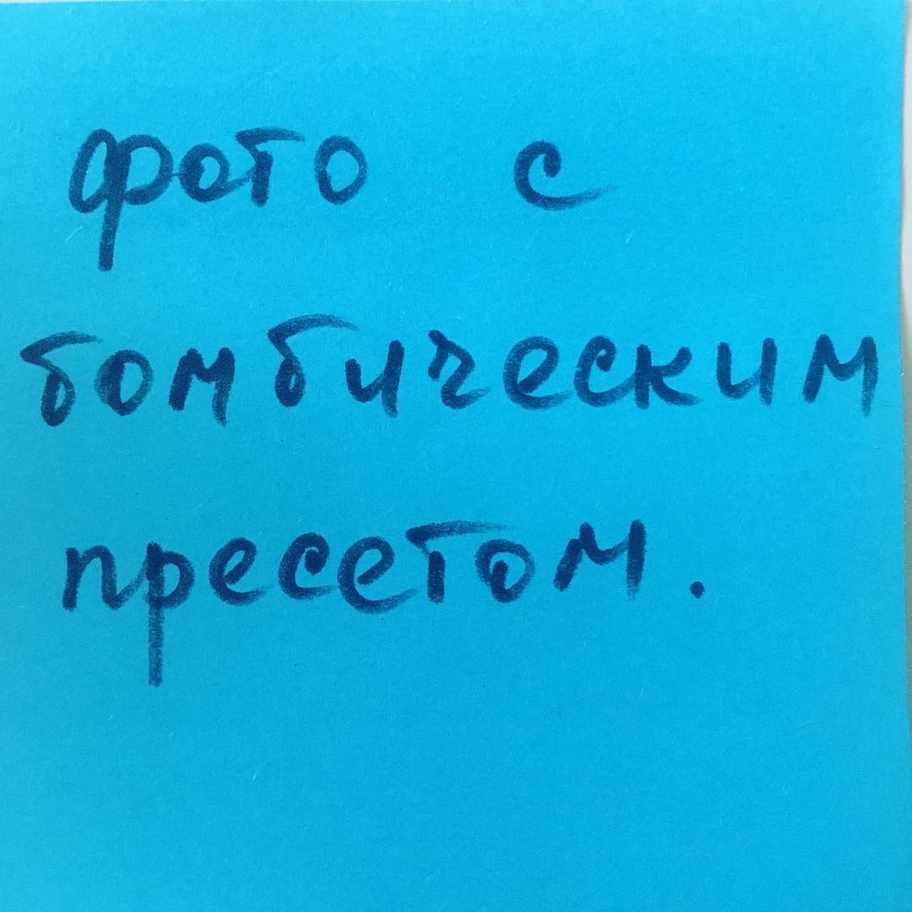 фото с
бомбическим
пресетом.